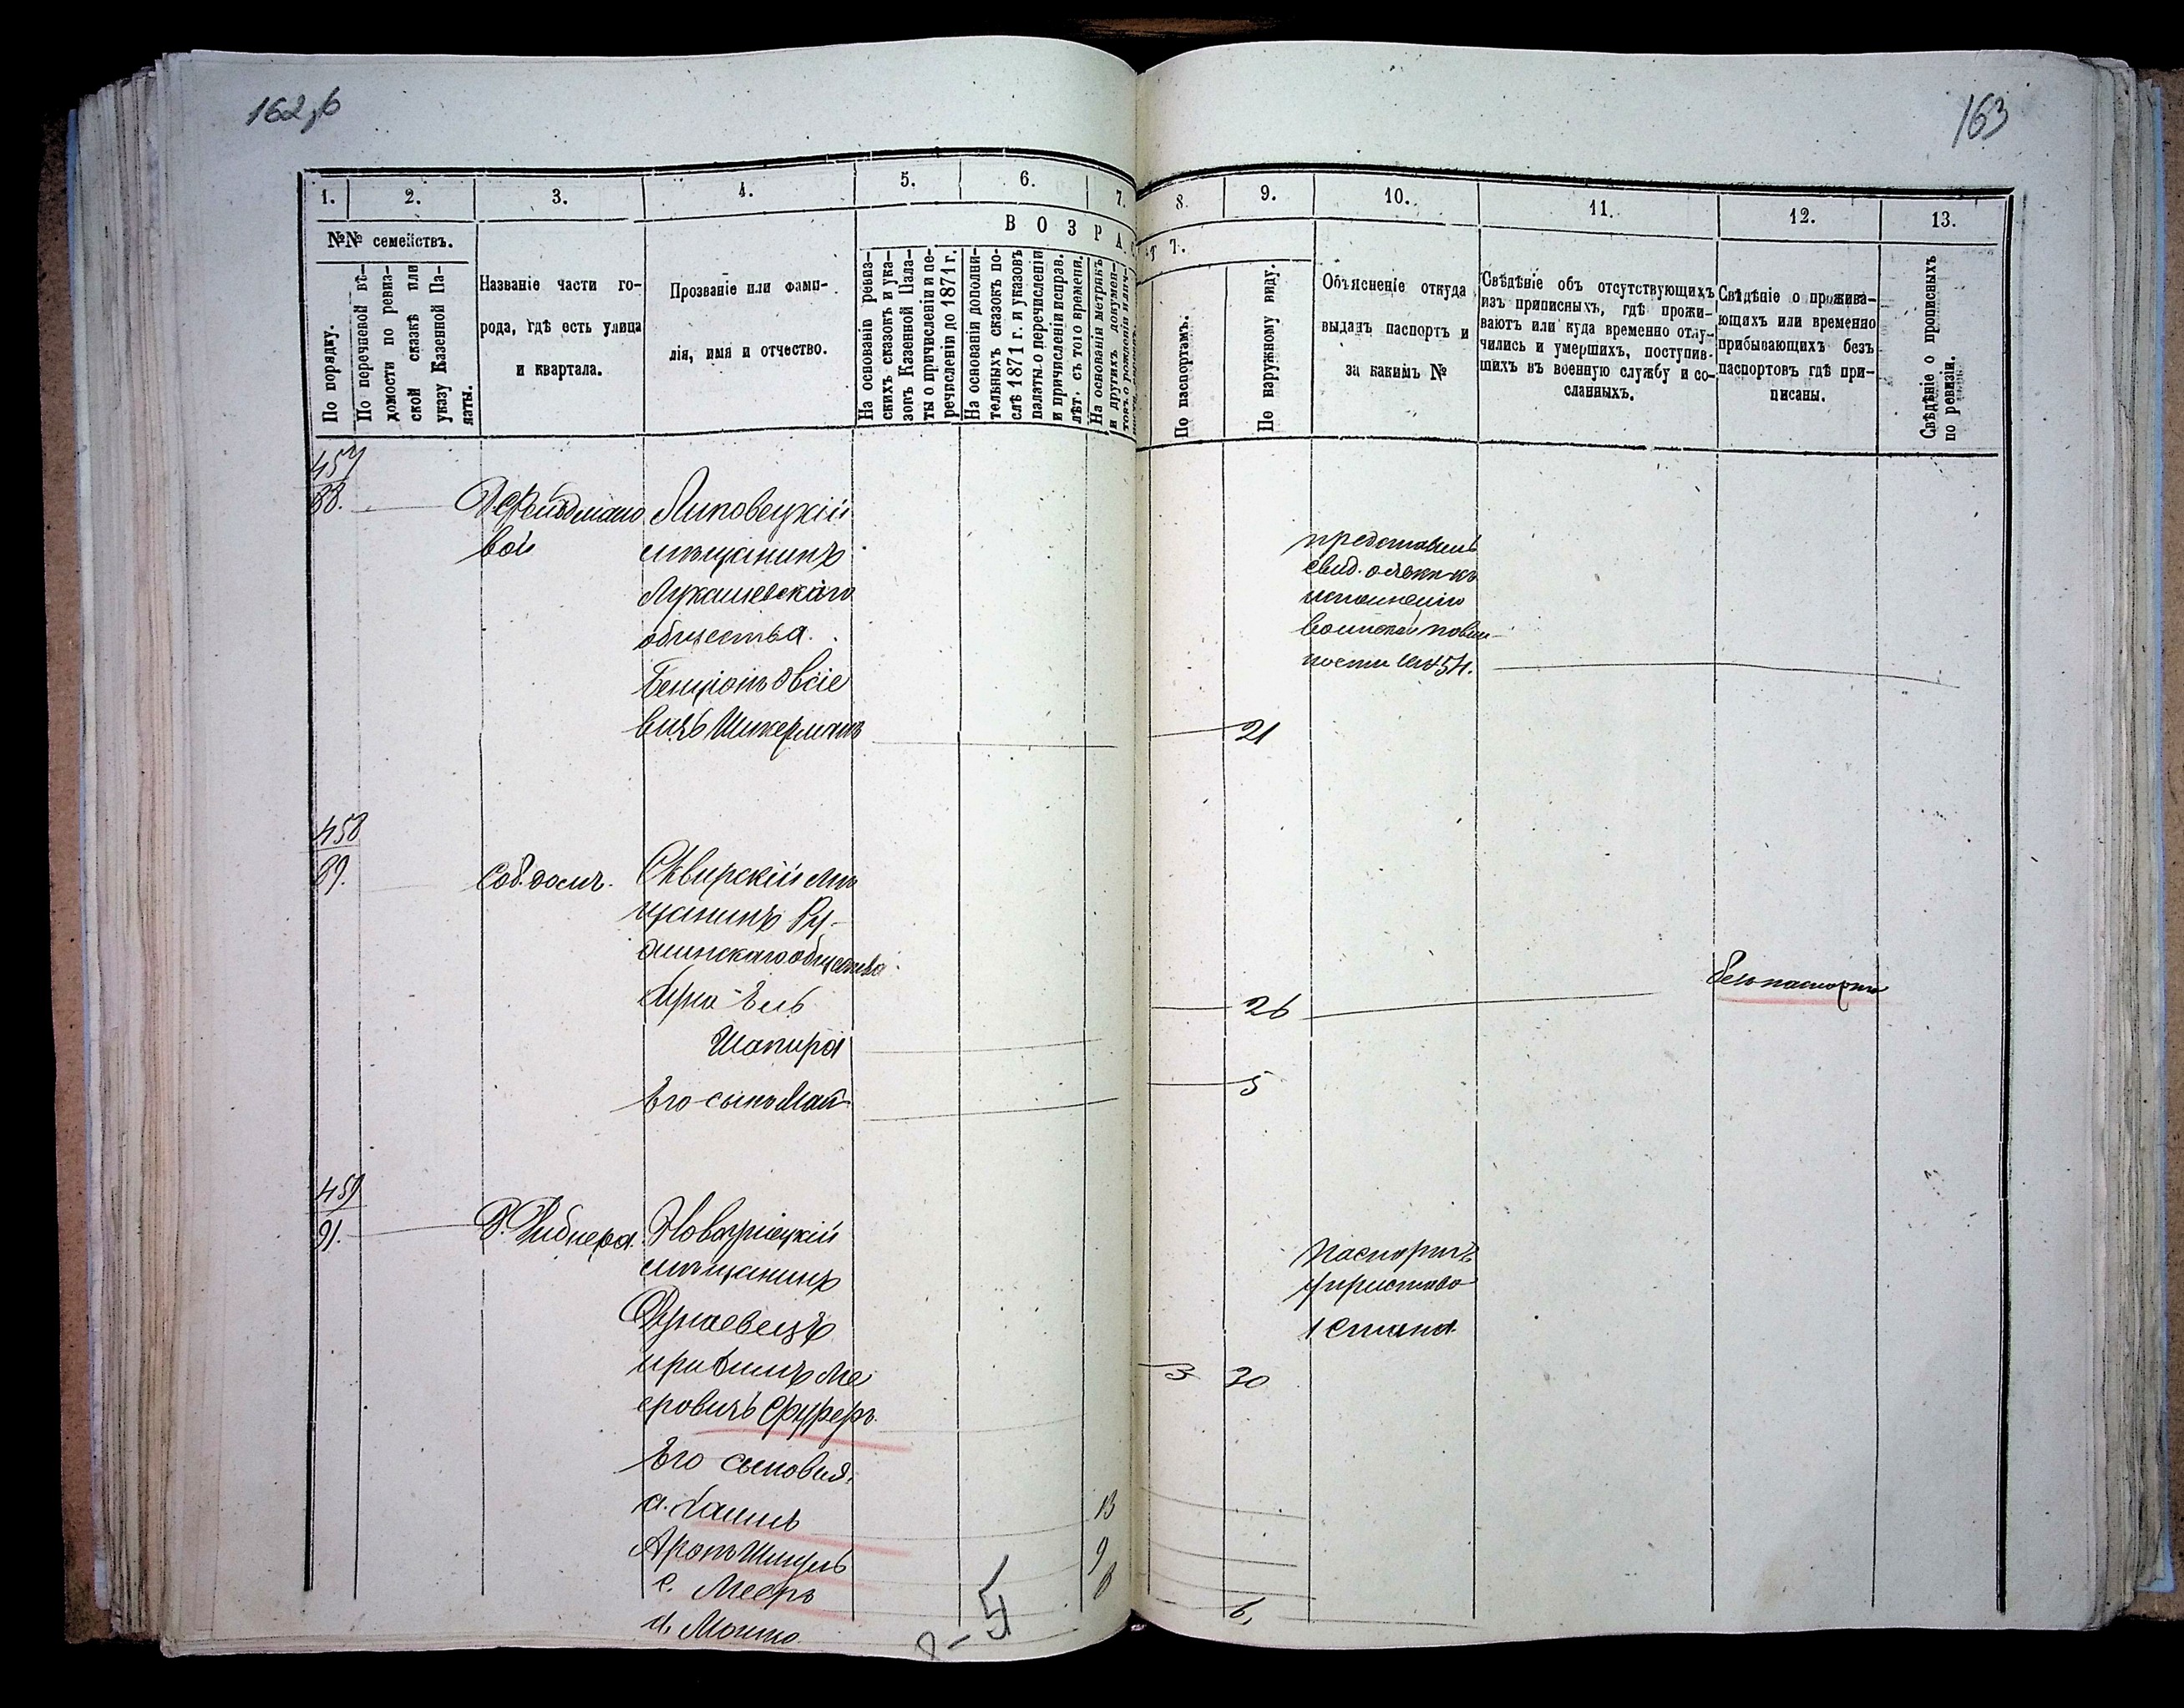 162,б
163
1.
2.
3.
4.
5.
6.
7.
8.
9.
10.
11.
12.
13.
№№ семействъ.
В О З Р А С
Т Ъ.
По порядку.
По перечневой вѣ-
домости по ревиз-
ской сказкѣ или
указу Казенной Па-
латы.
Названіе части го-
рода, гдѣ есть улица
и квартала.
Прозваніе или фами-
лія, имя и отчество.
На основаніи ревиз-
скихъ сказокъ и ука-
зовъ Казенной Пала-
ты о причисленіи и пе-
речисленіи до 1871 г.
На основаніи дополни-
тельныхъ сказокъ по-
слѣ 1871 г. и указовъ
палаты о перечисленіи
и причисленіи исправ.
лѣт. съ того времени.
На основаніи метрикъ
и другихъ докумен-
товъ о рожденіи
По паспортамъ.
По наружному виду.
Объясненіе откуда
выданъ паспортъ и
за какимъ №
Свѣдѣніе объ отсутствующихъ
изъ приписныхъ, гдѣ прожи-
ваютъ или куда временно отлу-
чились и умершихъ, поступив-
шихъ въ военную службу и со-
сланныхъ.
Свѣдѣніе о прожива-
ющихъ или временно
прибывающихъ безъ
паспортовъ гдѣ при-
писаны.
Свѣдѣніе о прописныхъ
по ревизіи.
457
88.
Липовецкій
вой
мѣщанинъ
Лукашевскаго
общества.
Бенціонъ Овсіе
вичъ Шикерманъ
21
представилъ
свид. о явкѣ къ
исполненію
воинской повин-
ности
458
89.
Соб. домъ.
Сквирскій мѣ
щанинъ Ру-
жинскаго общества
Ель
Шапира
26
безъ паспорта
Его сынъ
5
459
91.
мѣщанинъ
Дунаевецъ
Ме
еровичъ
3
30
Паспортъ
у пристава
1 Стана.
Его сыновья:
а. Хаимъ
13
Аронъ Шмуль
9
с. Мееръ
8
д. Мошко
6.
5